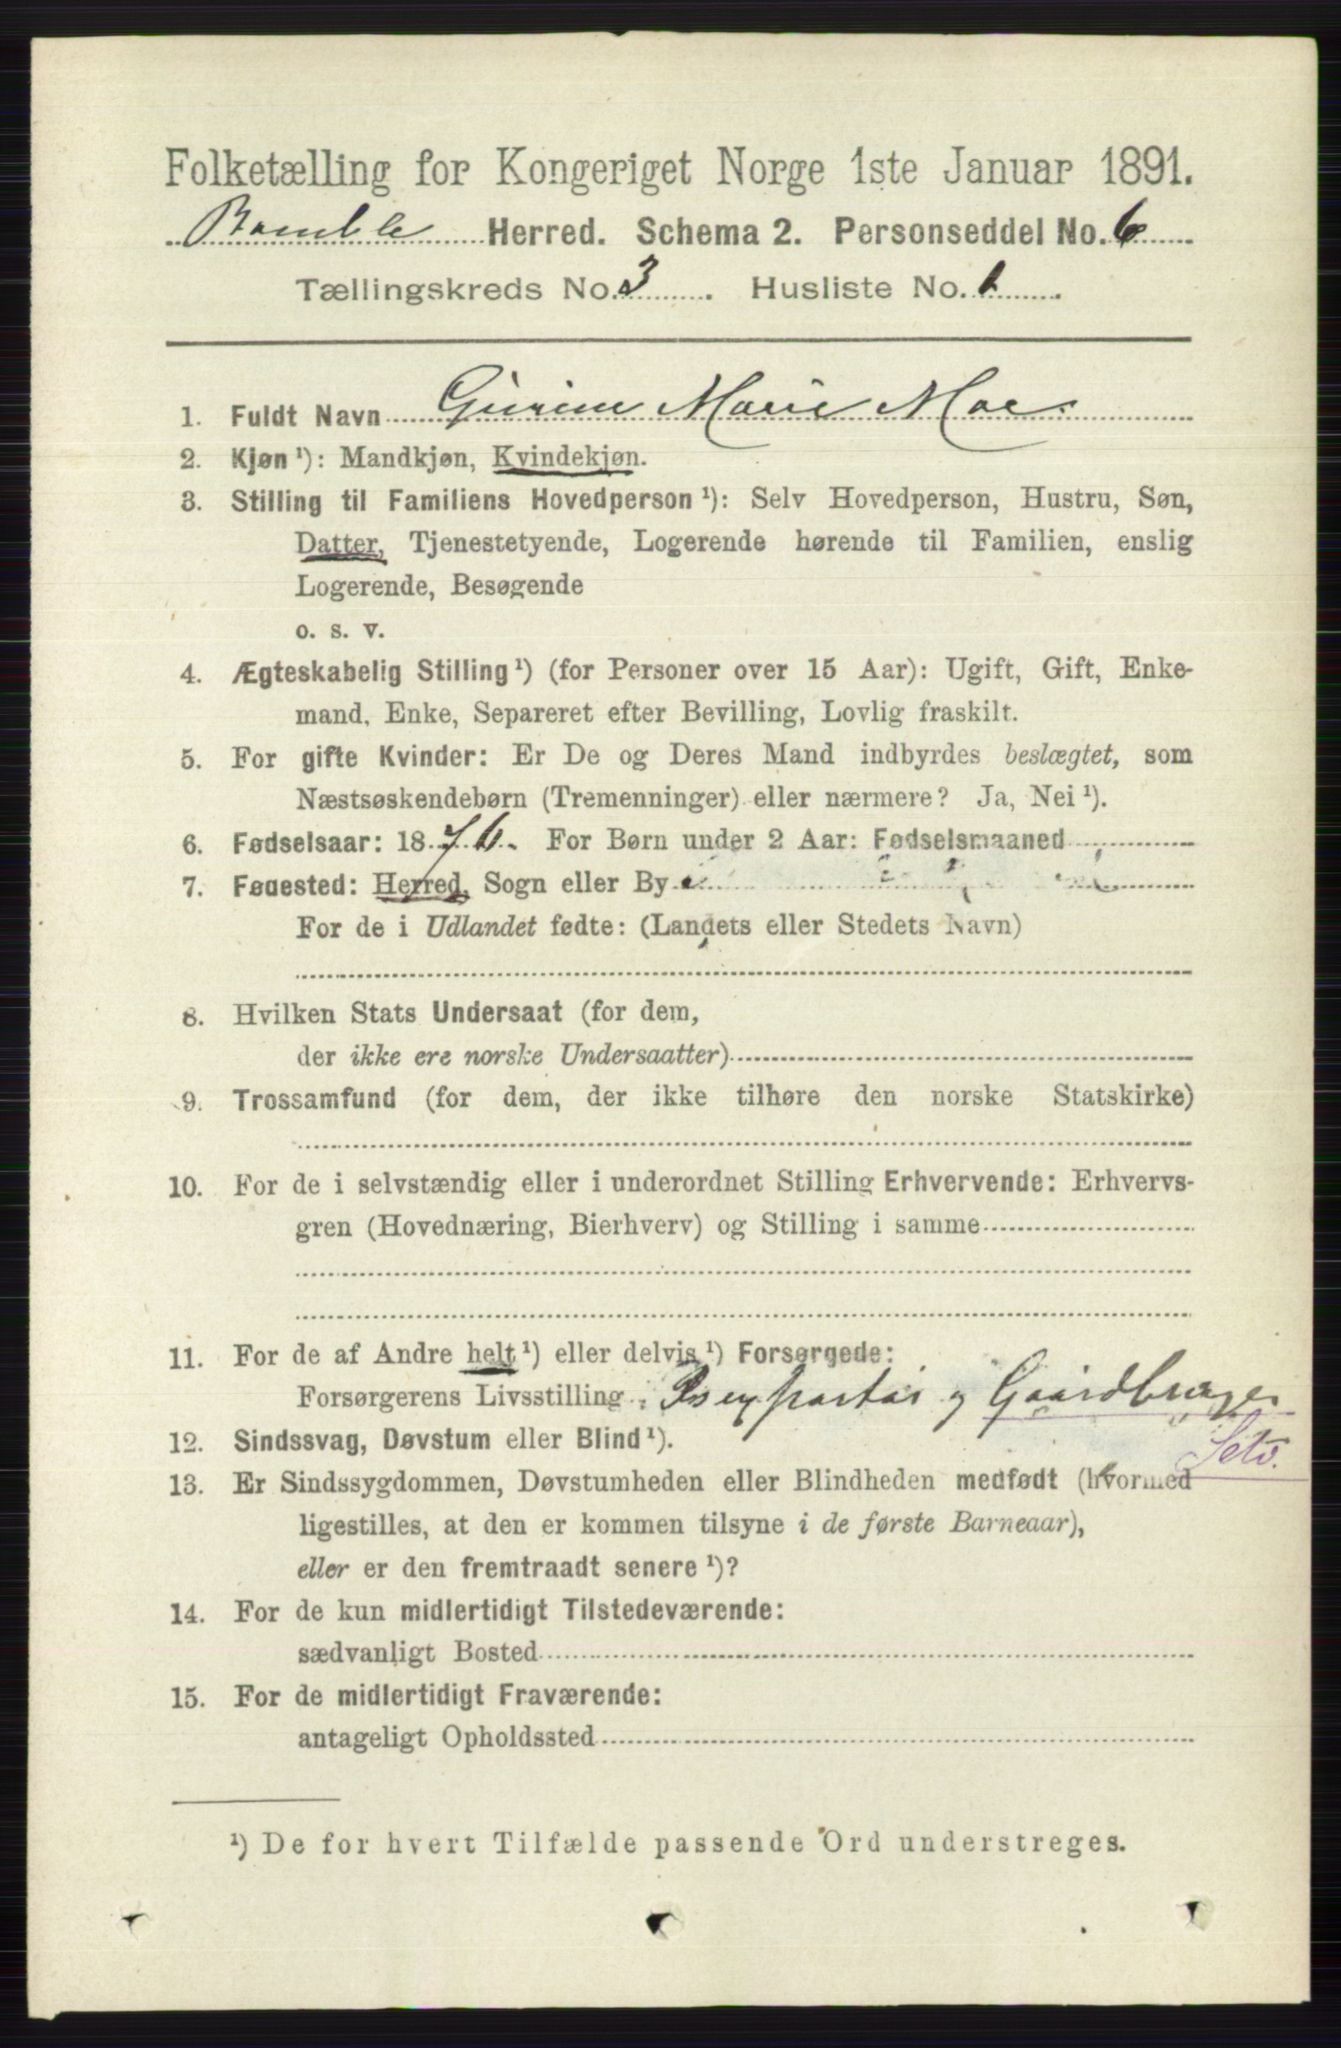 Folketælling for Kongeriget Norge 1ste Januar 1891.
Bamble Herred. Schema 2. Personseddel No. 6
Tællingskreds No. 3. Husliste No. 1.
1. Fuldt Navn Gurine Marie Moe.
2. Kjøn ¹): Mandkjøn, Kvindekjøn.
3. Stilling til Familiens Hovedperson ¹): Selv Hovedperson, Hustru, Søn,
Datter, Tjenestetyende, Logerende hørende til Familien, enslig
Logerende, Besøgende
o. s. v.
4. Ægteskabelig Stilling ¹) (for Personer over 15 Aar): Ugift, Gift, Enke-
mand, Enke, Separeret efter Bevilling, Lovlig fraskilt.
5. For gifte Kvinder: Er De og Deres Mand indbyrdes beslægtet, som
Næstsøskendebørn (Tremenninger) eller nærmere? Ja, Nei ¹).
6. Fødselsaar: 1876. For Børn under 2 Aar: Fødselsmaaned
7. Fødested: Herred, Sogn eller By
For de i Udlandet fødte: (Landets eller Stedets Navn)
8. Hvilken Stats Undersaat (for dem,
der ikke ere norske Undersaatter)
9. Trossamfund (for dem, der ikke tilhøre den norske Statskirke)
10. For de i selvstændig eller i underordnet Stilling Erhvervende: Erhvervs-
gren (Hovednæring, Bierhverv) og Stilling i samme
11. For de af Andre helt ¹) eller delvis ¹) Forsørgede:
Forsørgerens Livsstilling og Gaardbruger
Selv.
12. Sindssvag, Døvstum eller Blind ¹).
13. Er Sindssygdommen, Døvstumheden eller Blindheden medfødt (hvormed
ligestilles, at den er kommen tilsyne i de første Barneaar),
eller er den fremtraadt senere ¹)?
14. For de kun midlertidigt Tilstedeværende:
sædvanligt Bosted
15. For de midlertidigt Fraværende:
antageligt Opholdssted
¹) De for hvert Tilfælde passende Ord understreges.